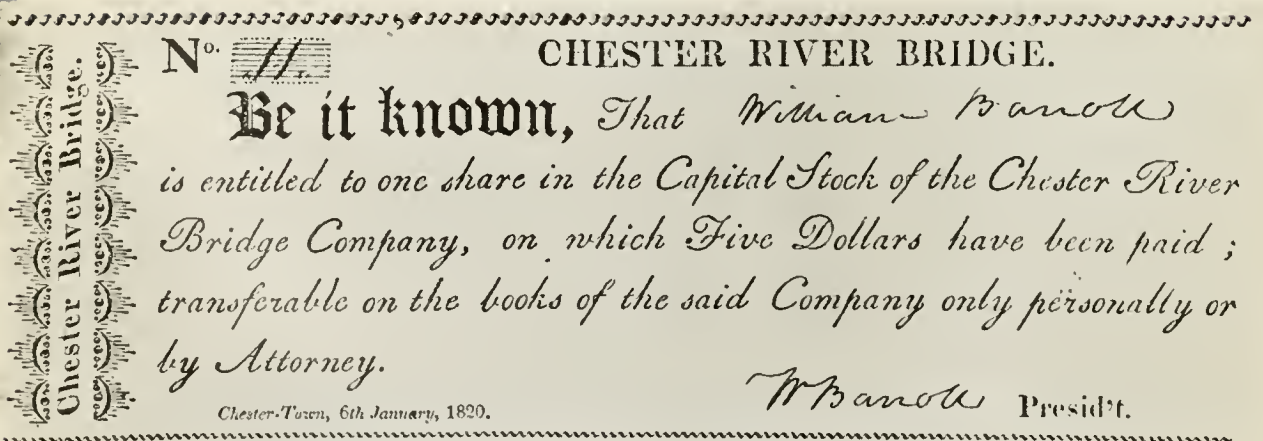 Chester River Bridge.
No. 11. CHESTER RIVER BRIDGE.
Be it known, That William Barroll
is entitled to one share in the Capital Stock of the Chester River
Bridge Company, on which Five Dollars have been paid ;
transferable on the books of the said Company only personally or
by Attorney.
W Barroll Presid't.
Chester-Town, 6th January, 1820.